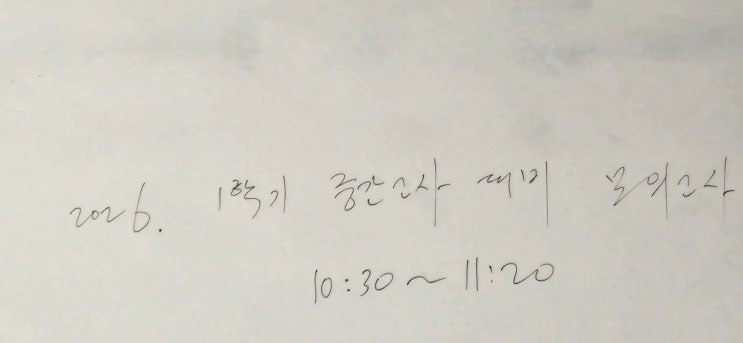 2026. 1학기 중간고사 대비 모의고사
10:30 ~ 11:20